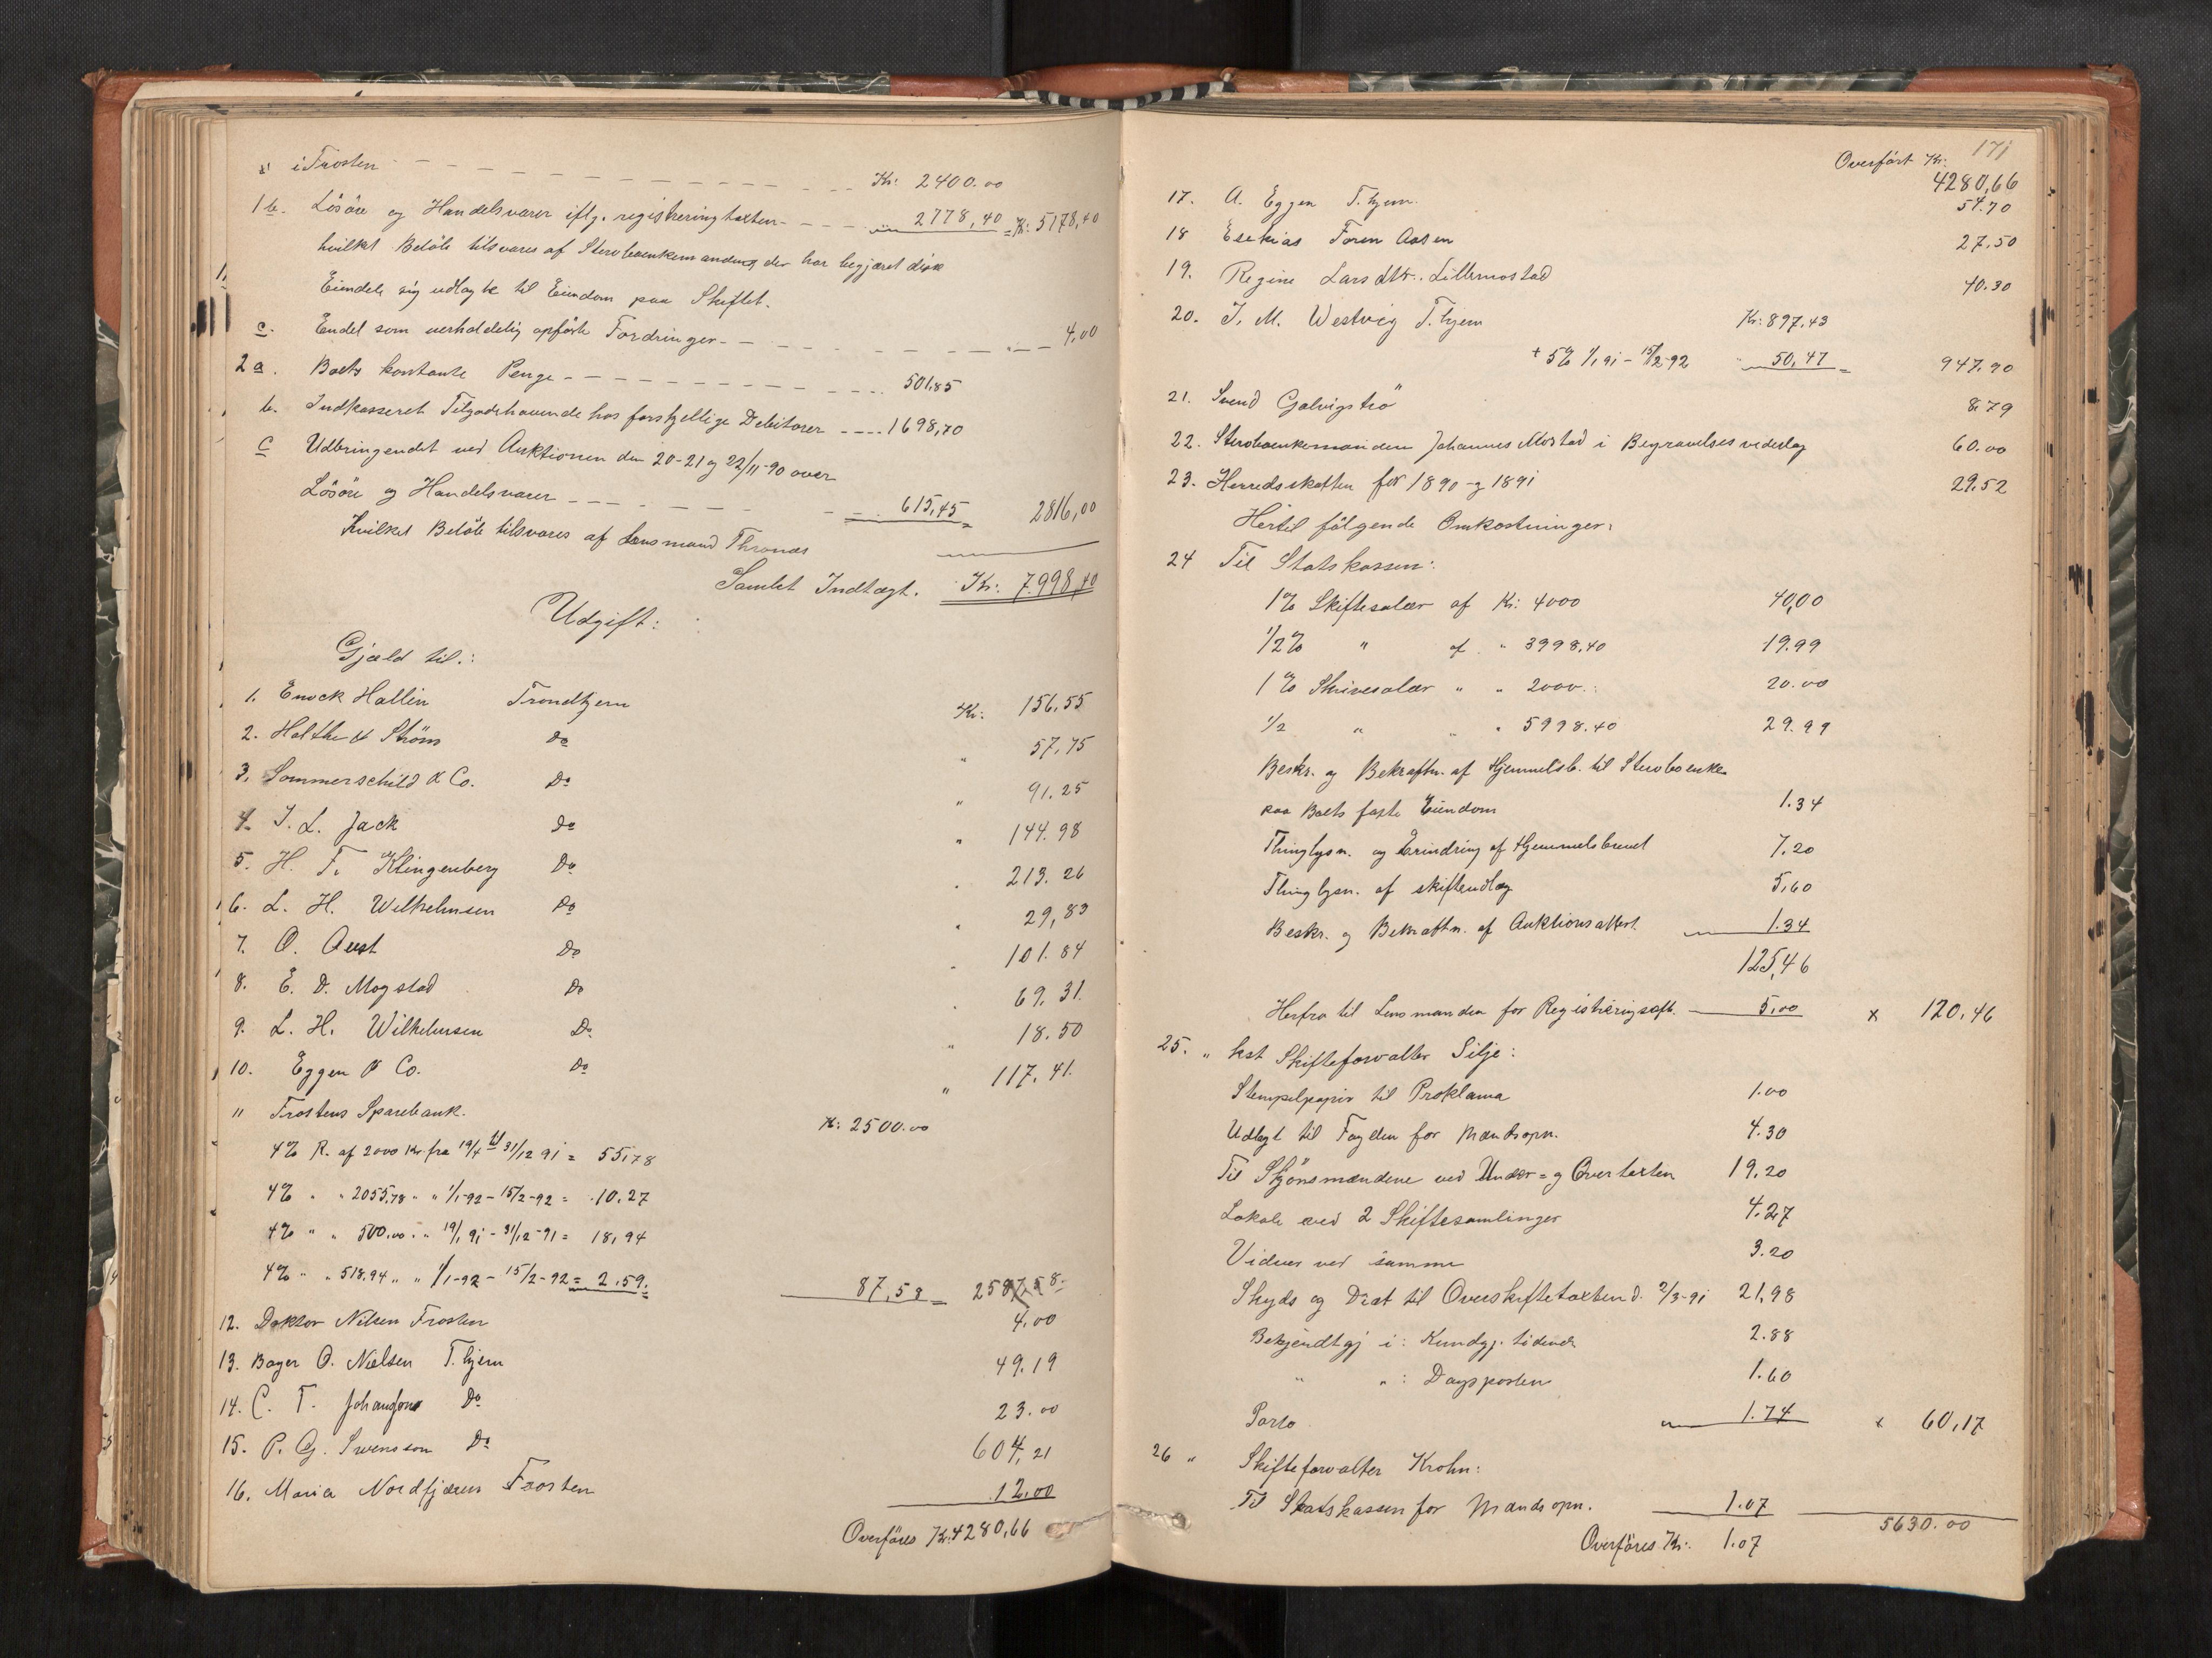 i Frosten Kr: 2400.00
1 b. Lösöre og Handelsvarer iflg. registreringtaxten 2778,40 = Kr: 5178,40
hvilket Beløb tilsvares af Stervboenkemanden, der har begjæret disse
Eiendele sig udlagte til Eiendom paa Skiftet.
c. Endel som uerholdelig opførte Fordringer " 4,00
2 a. Boets kontante Penge 501,85
b. Indkasseret Tilgodehavende hos forskjellige Debitorer 1698,70
c Udbringendet ved Auktionen den 20-21 og 22/11-90 over
Lösöre og Handelsvarer 615,45 = 2816,00
hvilket Beløb tilsvares af Lensmand Thronæs
Samlet Indtægt. Kr: 7.998,40
Udgift:
Gjæld til:
1. Enock Hallin Trondhjem Kr: 156.55
2. Halthe & Ström Do " 57,75
3. Sommerschild & Co. Do " 91.25
4. I. L. Jack Do " 144.98
5. H. F. Klingenberg Do " 213.26
6. L. H. Wilhelmsen Do " 29,83
7. O. Aust Do " 101.84
8. E. D. Mogstad Do " 69.31.
9. L. H. Wilhelmsen Do " 18.50
10. Eggen & Co. Do " 117.41.
11 Frostens Sparebank. Kr: 2500.00
4% R. af 2000 Kr. fra 19/4 til 31/12 91 = 55,78
4% " " 2055,78 " " 1/1-92 - 15/2-92 = 10.27
4% " " 500,00 " 19/1 91 - 31/12-91 = 18,94
4% " " 518.94 " " 1/1-92 - 15/2-92 = 2.59. 87,58 = 2587,58
12. Doktor Nilsen Frosten 4.00
13. Bager O. Nielsen T.hjem 49.19
14. C. T. Johansens Do 23.00
15. P. G. Svensson Do 604,21
16. Maria Nordfjæren Frosten 12.00
Overføres Kr. 4280,66
171
Overført Kr. 4280,66
17. A. Eggen T.hjem. 54.70
18 Esekias Foren Aasen 27,50
19. Regine Larsdtr. Lillemostad 40.30
20. I. M. Westvig T.hjem Kr: 897,43
+ 5% 1/1 91 - 15/2-92 " 50,47 = 947.90
21. Svend Galvigstrø 8.79
22. Stervboenkemanden Johannes Mostad i Begravelsesvederlag 60.00
23. Herredsskatten for 1890 og 1891 29.52
Hertil følgende Omkostninger:
24 Til Statskassen:
1% Skiftesalær af Kr: 4000 40,00
1/2% " af " 3998.40 19.99
1% Skrivesalær " " 2000.: 20.00
1/2 " " " 5998.40 29.99
Beskr. og Bekræftn. af Hjemmelsb. til Stervboenkem.
paa Boets faste Eiendom 1.34
Thinglysn. og Erindring af Hjemmelsbrevet 7.20
Thinglysn. af skifteudlæg 5,60
Beskr. og Bekræftn. af Auktionsattest. 1.34
125,46
Herfra til Lensmanden for Registreringsatt. 5,00 x 120,46
25. " kst Skifteforvalter Silje:
Stempelpapir til Proklama 1.00
Udlagt til Fogden for Mændsopn. 4.30
Til Skjønsmændene ved Under- og Overtaxten 19.20
Lokale ved 2 Skiftesamlinger 4.27
Vidner ved samme 3.20
Skyds og Diæt til Overskiftetaxten d. 2/3-91 21,98
Bekjendtgj i: Kundgj. tidende 2.88
" " : Dagsposten 1.60
Porto 1.74 x 60,17
26 " Skifteforvalter Krohn:
Til Statskassen for Mændsopn. 1.07 5630.00
Overføres Kr: 1.07